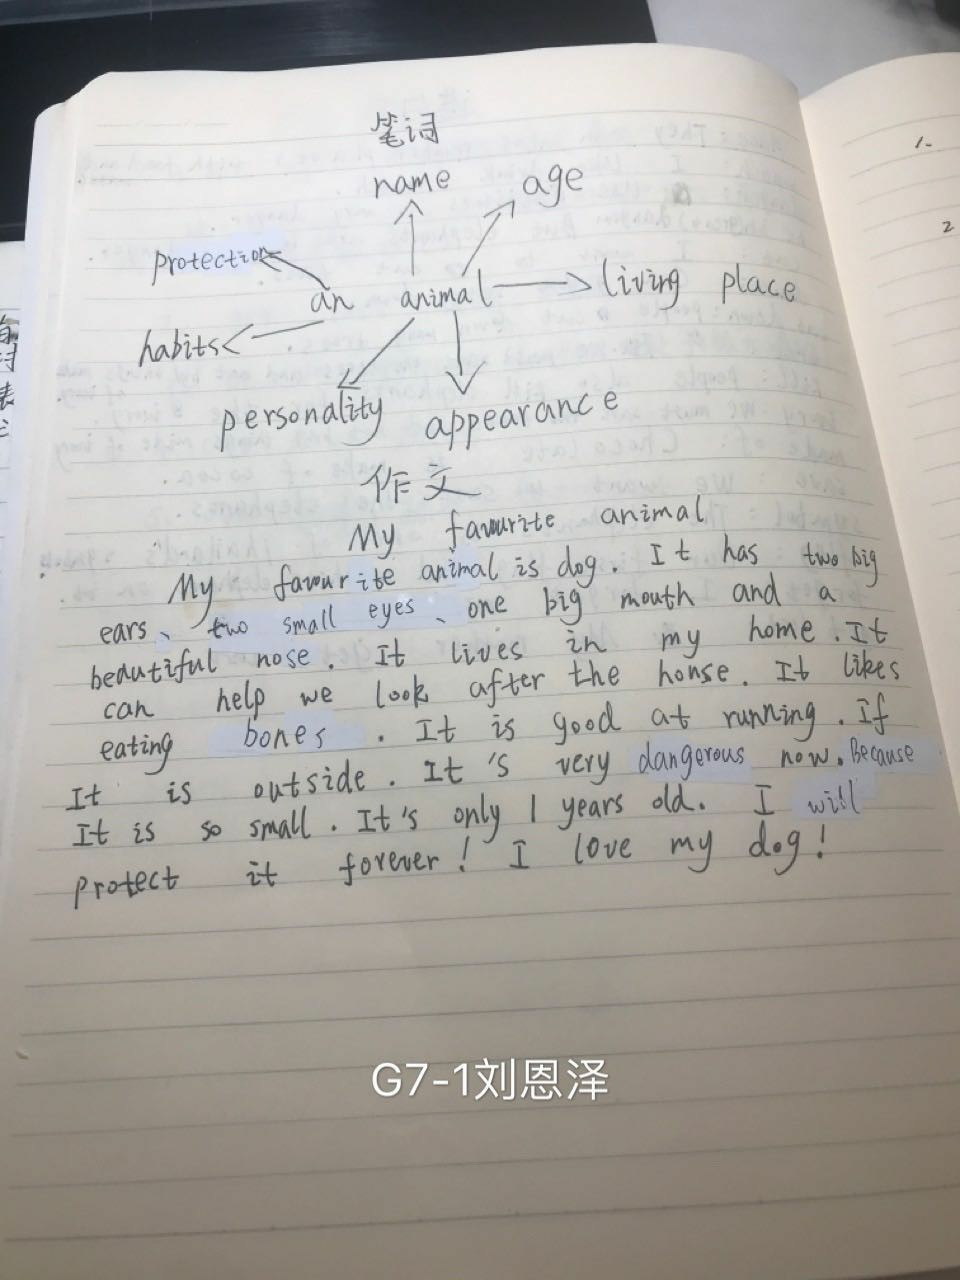 笔词
name
age
protection
an animal
living place
habits
personality
appearance
作文
My favourite animal
My favourite animal is dog. It has two big
ears、two small eyes、one big mouth and a
beautiful nose. It lives in my home. It
can help we look after the honse. It likes
eating bones. It is good at running. If
It is outside. It's very dangerous now. Because
It is so small. It's only 1 years old. I will
protect it forever! I love my dog!
1-
2
G7-1刘恩泽